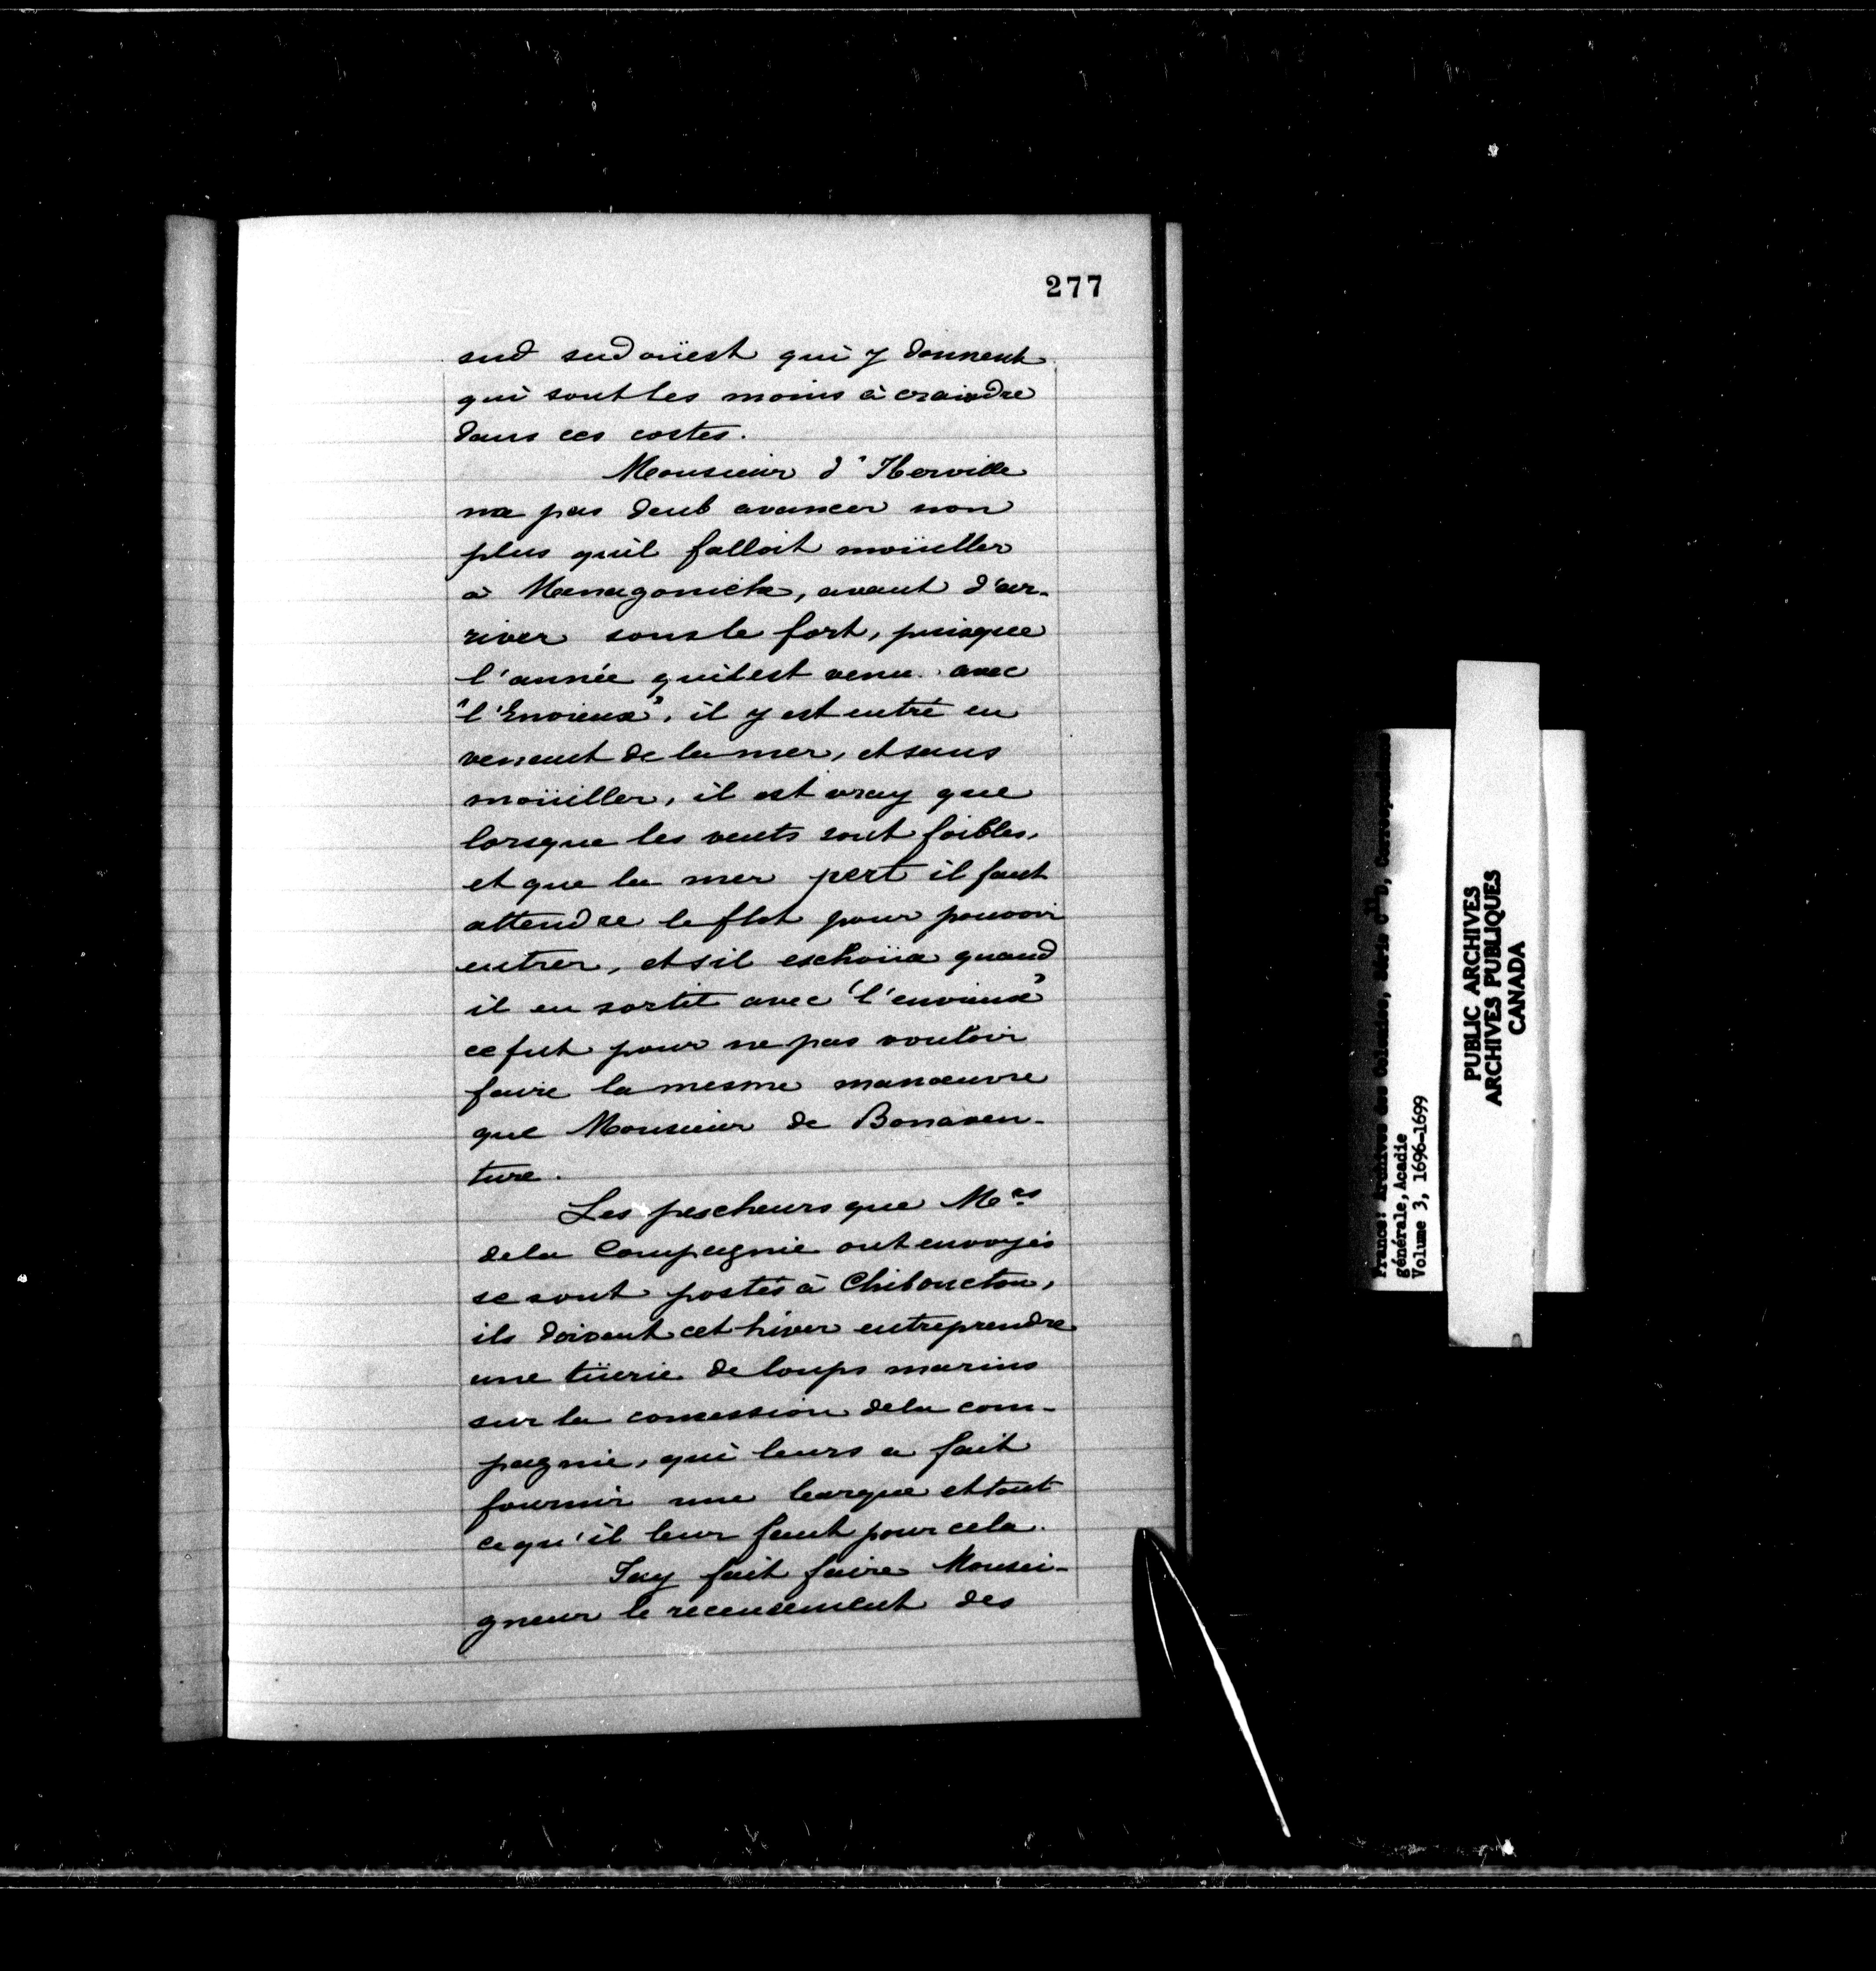 277
sud sudoüest qui y donnent
qui sont les moins à craindre
dans ces costes.
Monsieur d'Iberville
na pas deub avancer non
plus quil falloit moüiller
a Menagonick, avant d'ar-
river sous le fort, puisque
l'année quil est venu avec
"l'Envieux", il y est entré en
venant de la mer, et sans
moüiller, il est vray que
lorsque les vents sont foibles,
et que la mer pert il faut
attendre le flot pour pouvoir
entrer, et sil eschoüa quand
il en sortit avec "l'envieux"
ce fut pour ne pas vouloir
faire la mesme manœuvre
que Monsieur de Bonaven-
ture.
Les pescheurs que Mrs
de la Compagnie ont envoyés
se sont postés à Chiboucton,
ils doivent cet hiver entreprendre
une tüerie de loups marins
sur la concession de la com-
pagnie, qui leurs a fait
fournir une barque et tout
ce qu'il leur faut pour cela.
Jay fait faire Monsei-
gneur le recensement des
France: Archives des Colonies, Série C11D, Correspondance
générale, Acadie
Volume 3, 1696-1699
PUBLIC ARCHIVES
ARCHIVES PUBLIQUES
CANADA